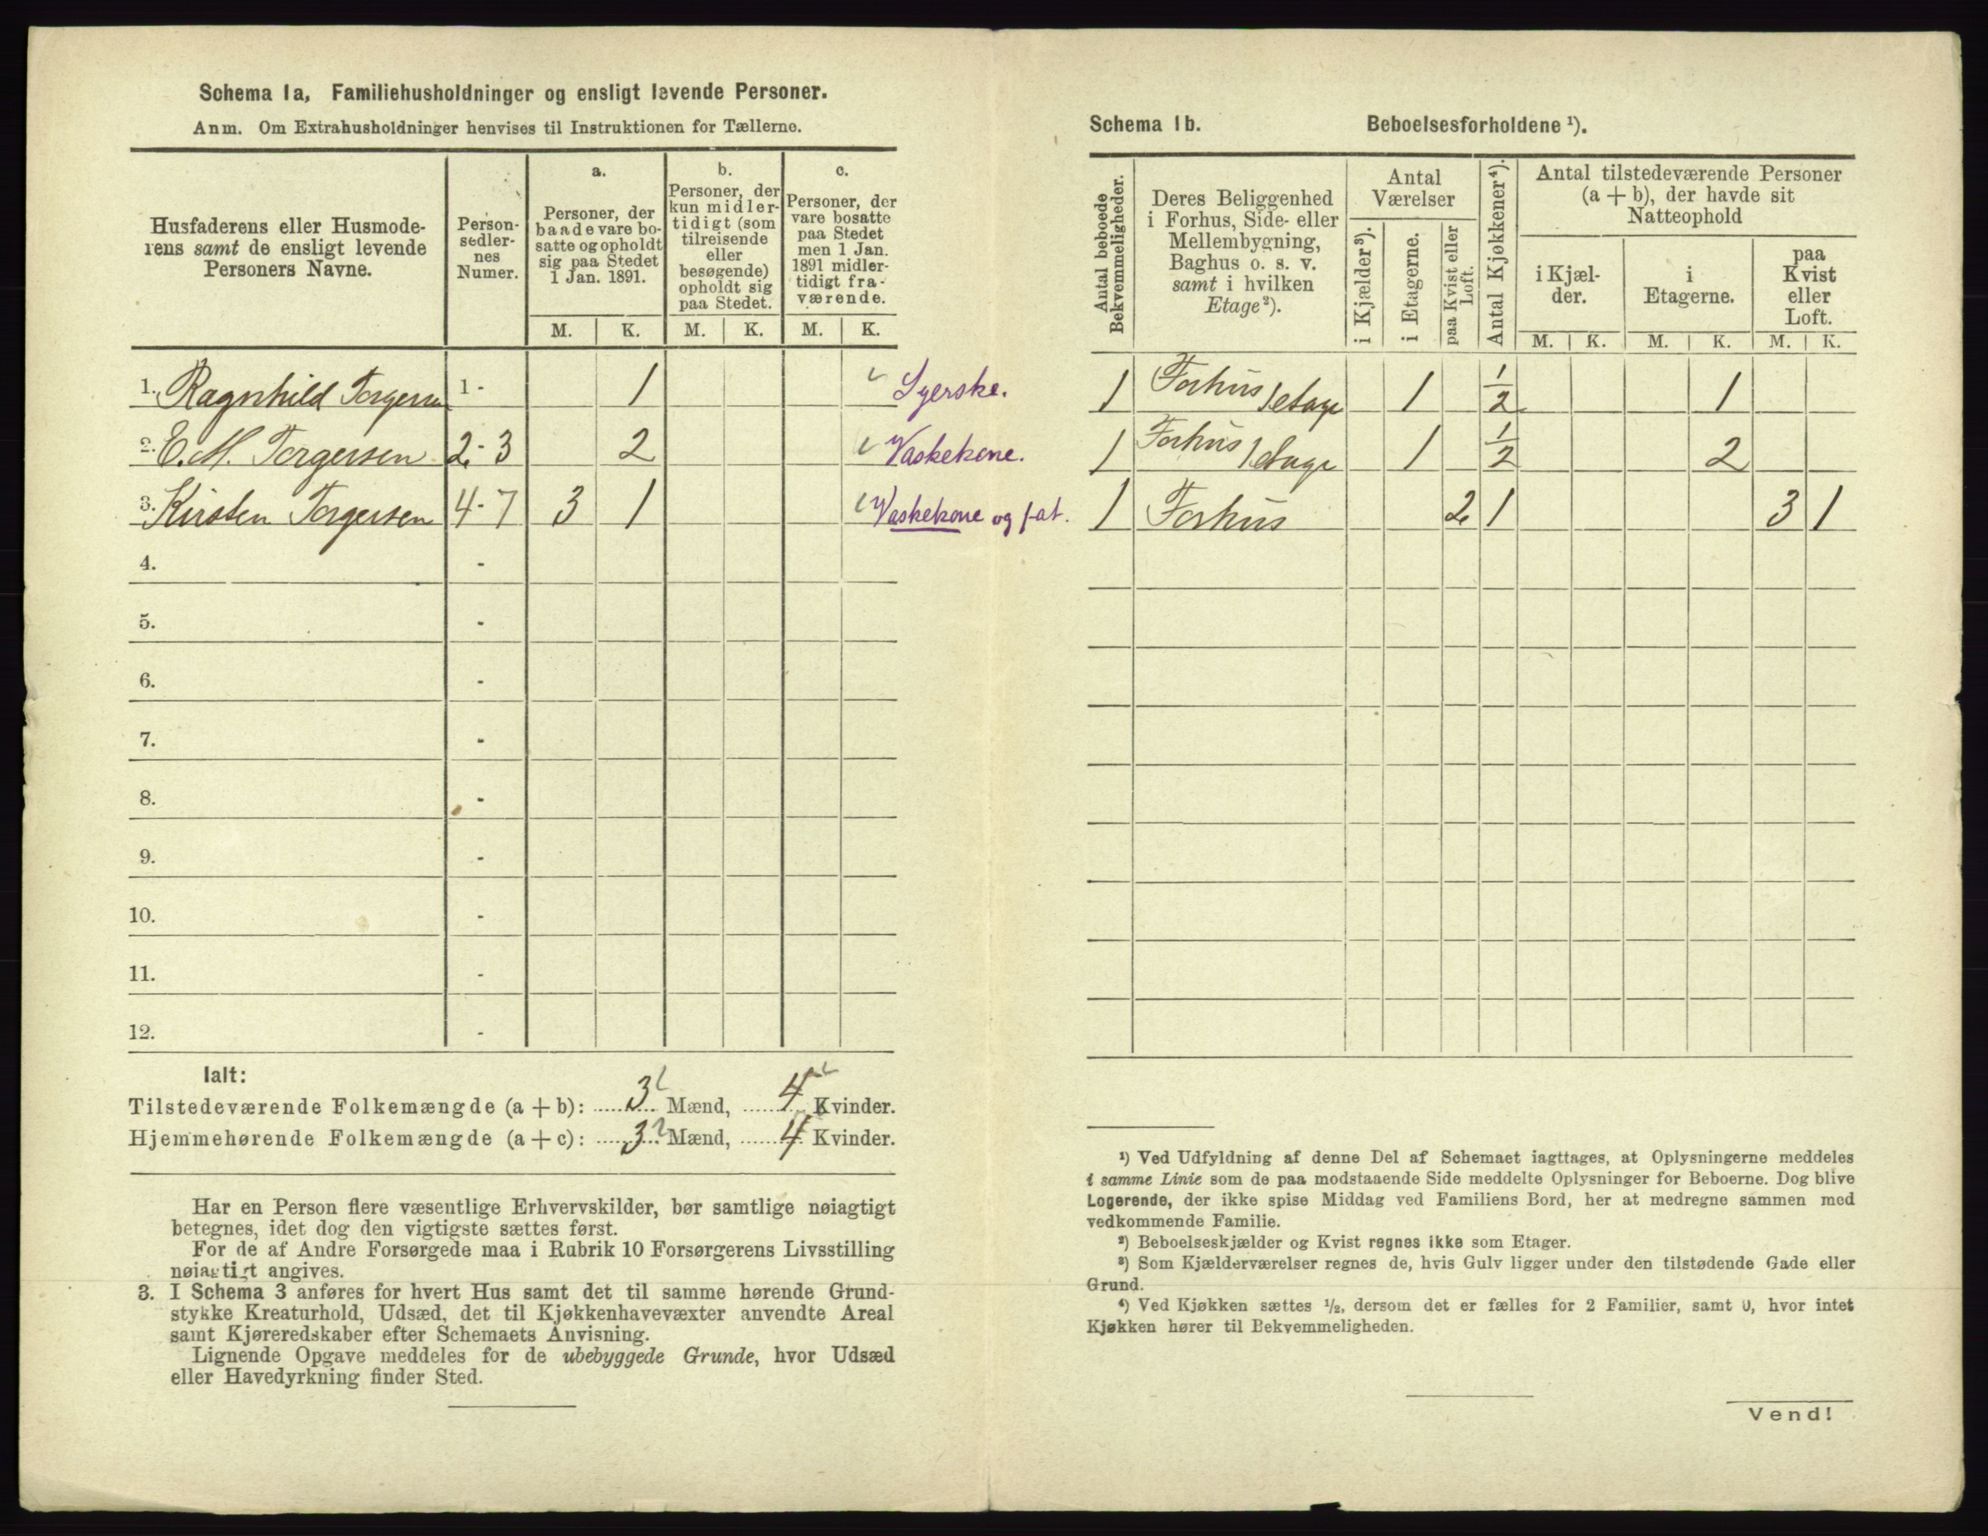 Schema 1a, Familiehusholdninger og ensligt levende Personer.
Anm. Om Extrahusholdninger henvises til Instruktionen for Tællerne.
Husfaderens eller Husmode-
rens samt de ensligt levende
Personers Navne.
Person-
sedler-
nes
Numer.
a.
Personer, der
baade vare bo-
satte og opholdt
sig paa Stedet
1 Jan. 1891.
b.
Personer, der
kun midler-
tidigt (som
tilreisende
eller
besøgende)
opholdt sig
paa Stedet.
c.
Personer, der
vare bosatte
paa Stedet
men 1 Jan.
1891 midler-
tidigt fra-
værende.
M. K. M. K. M. K.
1. Ragnhild Torgersen 1 - 1 Syerske.
2. E. M. Torgersen 2 - 3 2 Vaskekone.
3. Kirsten Torgersen 4 - 7 3 1 Vaskekone og fat.
4. -
5. -
6. -
7. -
8. -
9. -
10. -
11. -
12. -
Ialt:
Tilstedeværende Folkemængde (a + b): 3 Mænd, 4 Kvinder.
Hjemmehørende Folkemængde (a + c): 3 Mænd, 4 Kvinder.
Har en Person flere væsentlige Erhvervskilder, bør samtlige nøiagtigt
betegnes, idet dog den vigtigste sættes først.
For de af Andre Forsørgede maa i Rubrik 10 Forsørgerens Livsstilling
nøiagtigt angives.
3. I Schema 3 anføres for hvert Hus samt det til samme hørende Grund-
stykke Kreaturhold, Udsæd, det til Kjøkkenhavevæxter anvendte Areal
samt Kjøreredskaber efter Schemaets Anvisning.
Lignende Opgave meddeles for de ubebyggede Grunde, hvor Udsæd
eller Havedyrkning finder Sted.
Schema 1b. Beboelsesforholdene ¹).
Antal beboede
Bekvemmeligheder.
Deres Beliggenhed
i Forhus, Side- eller
Mellembygning,
Baghus o. s. v.
samt i hvilken
Etage²).
Antal
Værelser
i Kjælder³).
i Etagerne.
paa Kvist eller
Loft.
Antal Kjøkkener⁴).
Antal tilstedeværende Personer
(a + b), der havde sit
Natteophold
i Kjæl-
der.
i
Etagerne.
paa
Kvist
eller
Loft.
M. K. M. K. M. K.
1 Forhus 1 etage 1 1/2 1
1 Forhus 1 etage 1 1/2 2
1 Forhus 2 1 3 1
¹) Ved Udfyldning af denne Del af Schemaet iagttages, at Oplysningerne meddeles
i samme Linie som de paa modstaaende Side meddelte Oplysninger for Beboerne. Dog blive
Logerende, der ikke spise Middag ved Familiens Bord, her at medregne sammen med
vedkommende Familie.
²) Beboelseskjælder og Kvist regnes ikke som Etager.
³) Som Kjælderværelser regnes de, hvis Gulv ligger under den tilstødende Gade eller
Grund.
⁴) Ved Kjøkken sættes ½, dersom det er fælles for 2 Familier, samt 0, hvor intet
Kjøkken hører til Bekvemmeligheden.
Vend!